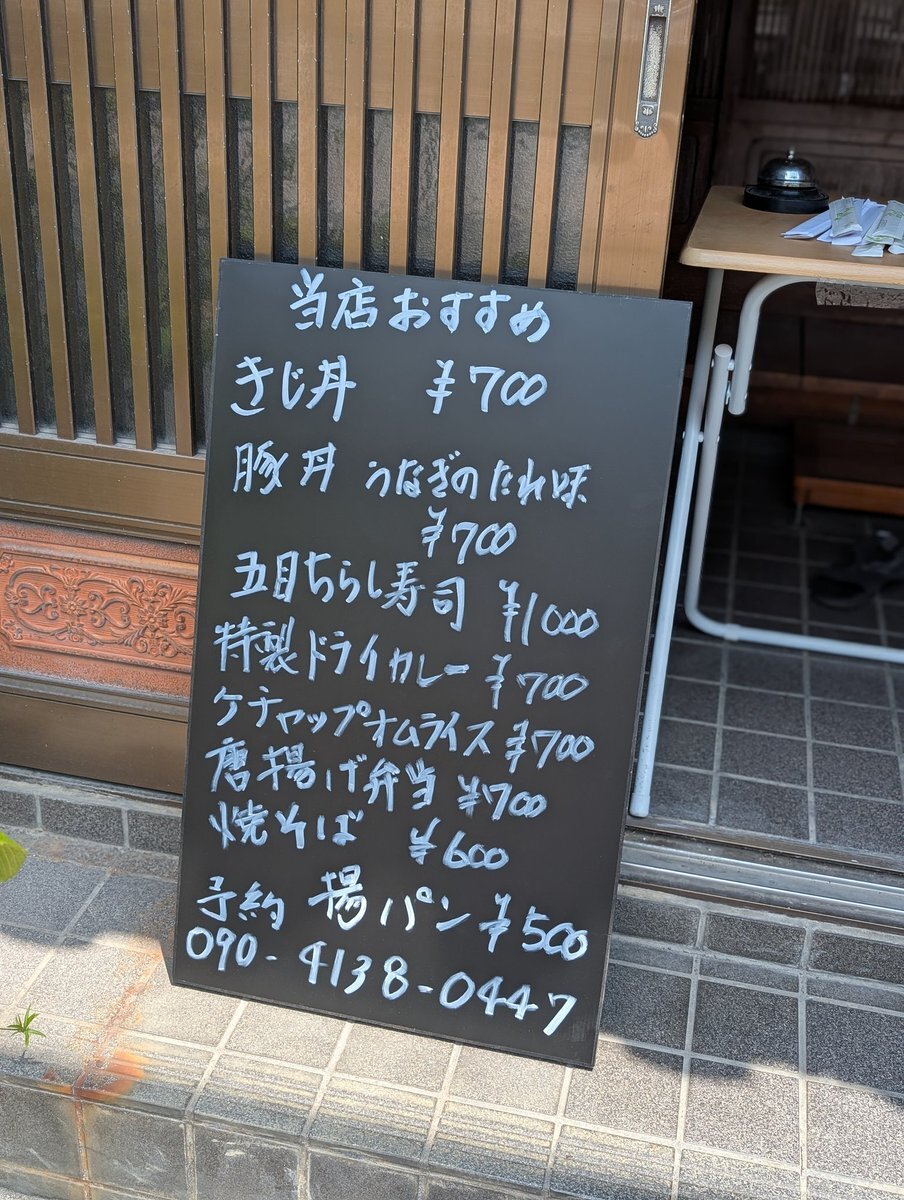 当店おすすめ
きじ丼 ¥700
豚丼 うなぎのたれ味
¥700
五目ちらし寿司 ¥1000
特製ドライカレー ¥700
ケチャップオムライス ¥700
唐揚げ弁当 ¥700
焼そば ¥600
予約 揚パン ¥500
090-4138-0447